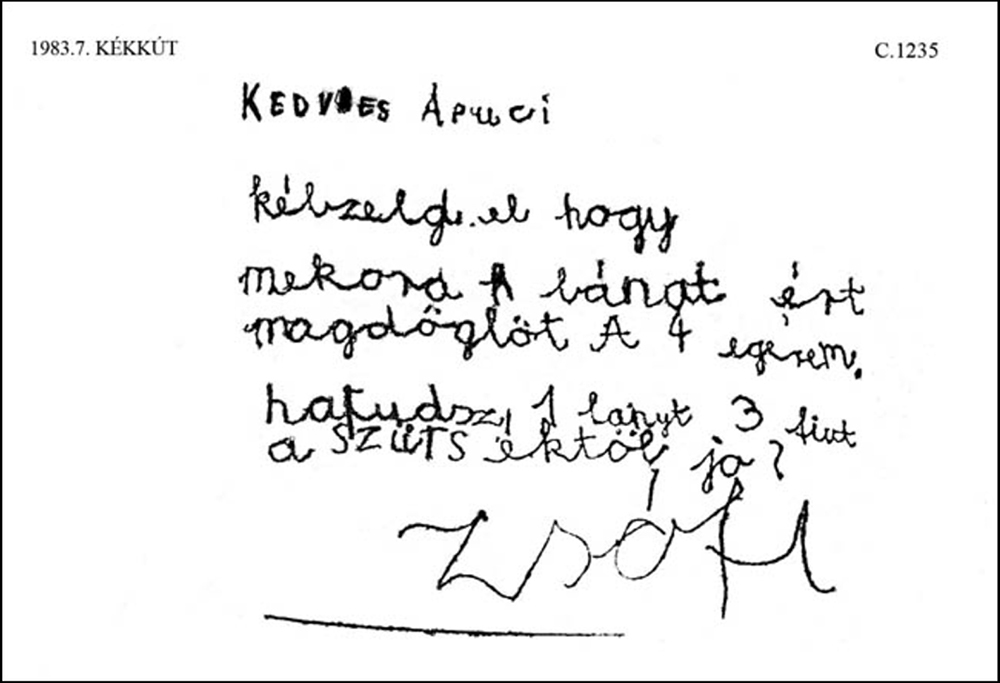 1983.7. KÉKKÚT
C.1235
KEDVES Apuci
kébzeld el hogy
mekora bánat ért
magdöglöt A 4 egérem.
hatudsz, 1 lányt 3 fiut
a SZÜTS éktöl, jó?
Zsófi